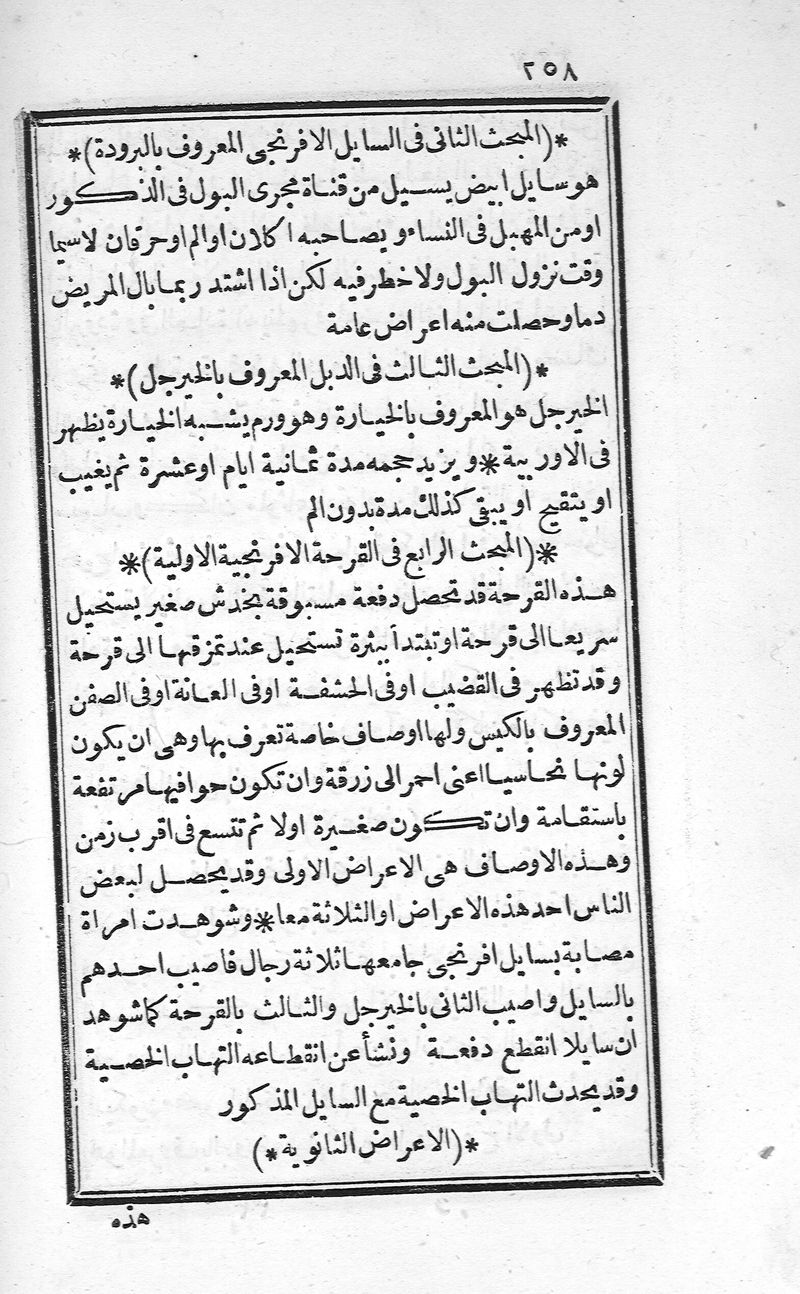 ٢٥٨
*(المبحث الثانى فى السايل الافرنجى المعروف بالبرودة)*
هو سايل ابيض يسيل من قناة مجرى البول فى الذكور
او من المهبل فى النساء ويصاحبه اكلان او الم او حرقان لاسيما
وقت نزول البول ولا خطر فيه لكن اذا اشتد ربما بال المريض
دما وحصلت منه اعراض عامة
*(المبحث الثالث فى الدبل المعروف بالخيرجل)*
الخيرجل هو المعروف بالخيارة وهو ورم يشبه الخيارة يظهر
فى الاوربية * ويزيد حجمه مدة ثمانية ايام او عشرة ثم يغيب
او يتقيح او يبقى كذلك مدة بدون الم
*(المبحث الرابع فى القرحة الافرنجية الاولية)*
هذه القرحة قد تحصل دفعة مسبوقة بخدش صغير يستحيل
سريعا الى قرحة او تبتدأ ببثرة تستحيل عند تمزقها الى قرحة
وقد تظهر فى القضيب او فى الحشفة او فى العانة او فى الصفن
المعروف بالكيس ولها اوصاف خاصة تعرف بها وهى ان يكون
لونها نحاسيا اعنى احمر الى زرقة وان تكون حوافيها مرتفعة
باستقامة وان تكون صغيرة اولا ثم تتسع فى اقرب زمن
وهذه الاوصاف هى الاعراض الاولى وقد يحصل لبعض
الناس احد هذه الاعراض او الثلاثة معا * وشوهدت امراة
مصابة بسايل افرنجى جامعها ثلاثة رجال فاصيب احدهم
بالسايل واصيب الثانى بالخيرجل والثالث بالقرحة كما شوهد
ان سايلا انقطع دفعة ونشأ عن انقطاعه التهاب الخصية
وقد يحدث التهاب الخصية مع السايل المذكور
*(الاعراض الثانوية*)
هذه